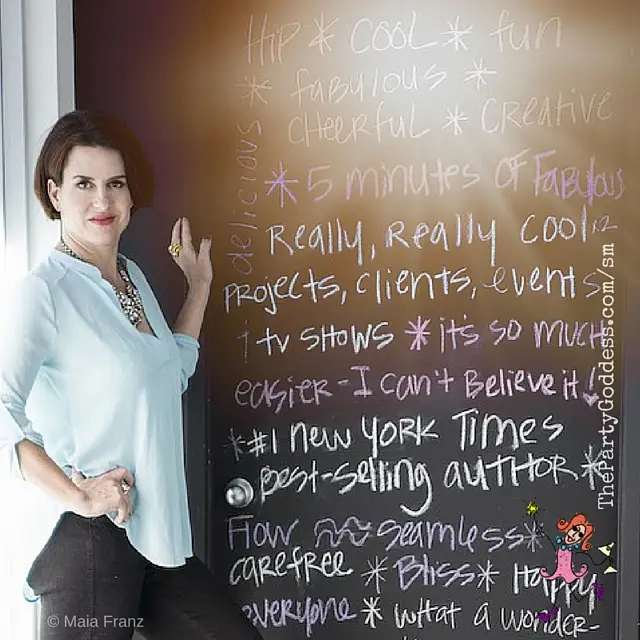 HIP * COOL * fun
* fabulous *
CHEERFUL * CREATIVE
delicious
* 5 minutes OF FABULOUS
Really, Really COOL
PROJECTS, Clients, events
+ tv SHOWS * it's so much
easier - I can't Believe it!
* #1 new YORK Times
best-selling AUTHOR *
Flow seamless *
carefree * Bliss * Happy
everyone * what a wonder-
ThePartyGoddess.com/sm
© Maia Franz